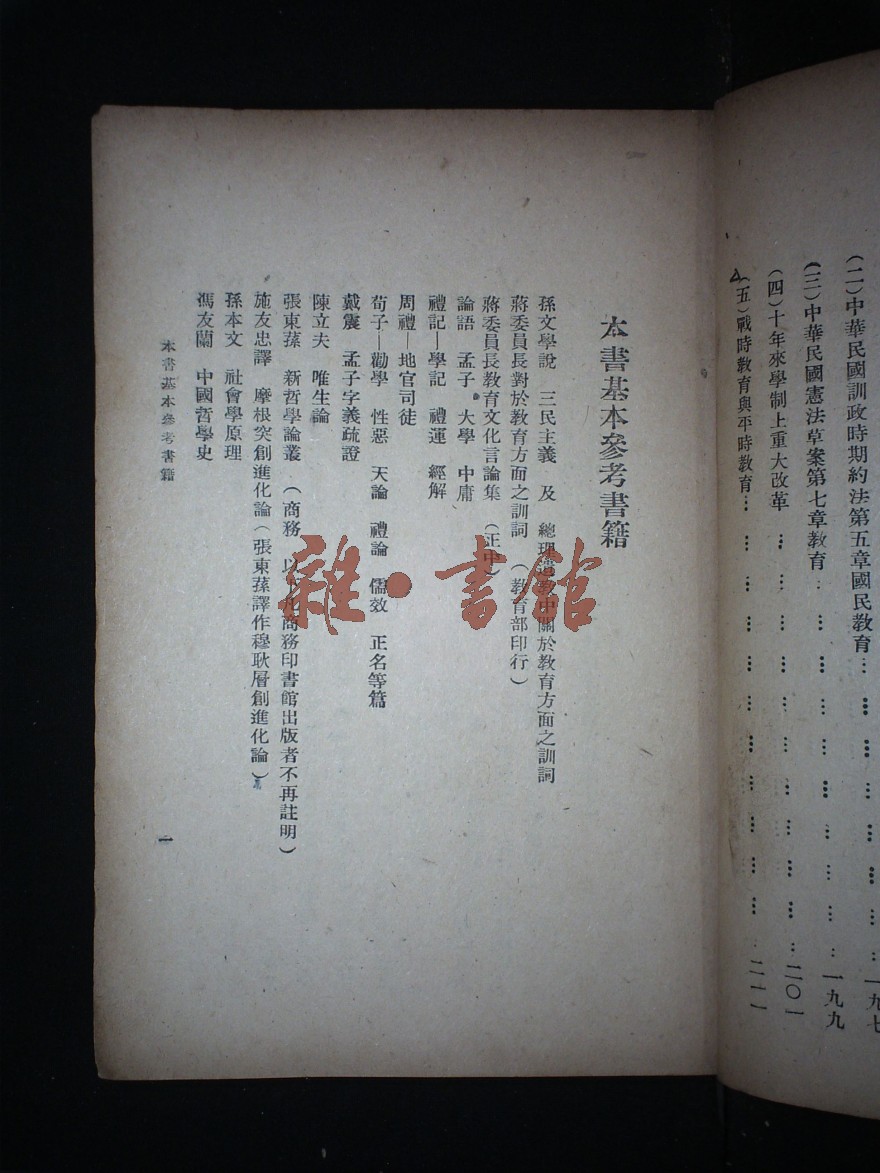 (二)中華民國訓政時期約法第五章國民教育…………………一九七
(三)中華民國憲法草案第七章教育…………………一九九
(四)十年來學制上重大改革…………………二〇一
(五)戰時教育與平時教育…………………二一一
本書基本參考書籍
孫文學說 三民主義 及 總理遺教中關於教育方面之訓詞
蔣委員長對於教育方面之訓詞(教育部印行)
蔣委員長教育文化言論集(正中)
論語 孟子 大學 中庸
禮記—學記 禮運 經解
周禮—地官司徒
荀子—勸學 性惡 天論 禮論 儒效 正名等篇
戴震 孟子字義疏證
陳立夫 唯生論
張東蓀 新哲學論叢 (商務 以下凡商務印書館出版者不再註明)
施友忠譯 摩根突創進化論(張東蓀譯作穆耿層創進化論)
孫本文 社會學原理
馮友蘭 中國哲學史
本書基本參考書籍
一
雜·書館